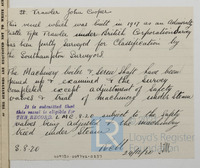 Trawler John Cooper
This vessel which was built in 1917 as an Admiralty
Castle Type Trawler under British Corporation Survey
has been partly surveyed for Classification by
the Southampton Surveyors.
The Machinery Boiler & Screw Shaft have been
opened up & examined & the Survey
completed except adjustment of Safety
Valves & trial of machinery under steam.
It is submitted that
this vessel is eligible for
THE RECORD. LMC 8.20 subject to the safety
valves being adjusted & machinery
tried under steam.
3.8.20
Lloyd's Register